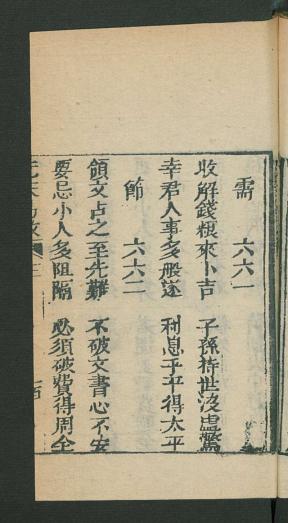 需 六六一
收解錢粮來卜吉 子孫持世沒虛驚
幸君人事多般遂 利息乎平得太平
節 六六二
領文占之至先難 不破文書心不安
要忌小人多阻隔 必須破費得周全